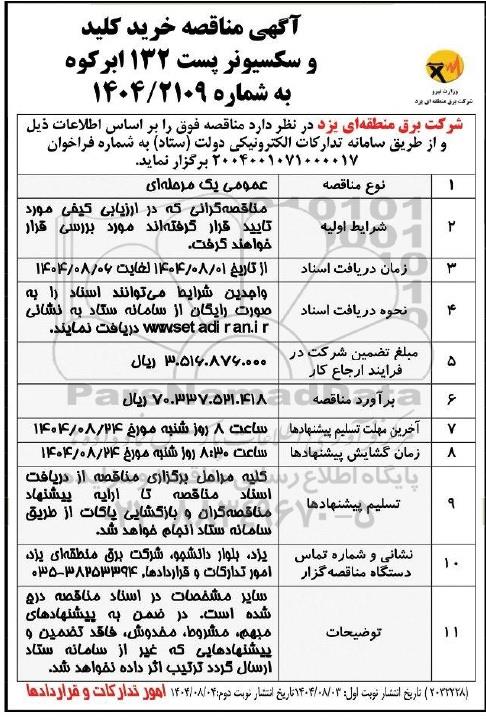 آگهی مناقصه خرید کلید
و سکسیونر پست ۱۳۲ ابرکوه
به شماره ۱۴۰۴/۲۱۰۹
وزارت نیرو
شرکت برق منطقه ای یزد
شرکت برق منطقه‌ای یزد در نظر دارد مناقصه فوق را بر اساس اطلاعات ذیل
و از طریق سامانه تدارکات الکترونیکی دولت (ستاد) به شماره فراخوان
۲۰۰۴۰۰۱۰۷۱۰۰۰۰۱۷ برگزار نماید.
۱ نوع مناقصه عمومی یک مرحله‌ای
۲ شرایط اولیه مناقصه‌گرانی که در ارزیابی کیفی مورد
تایید قرار گرفته‌اند مورد بررسی قرار
خواهند گرفت.
۳ زمان دریافت اسناد از تاریخ ۱۴۰۴/۰۸/۰۱ لغایت ۱۴۰۴/۰۸/۰۶
۴ نحوه دریافت اسناد واجدین شرایط می‌توانند اسناد را به
صورت رایگان از سامانه ستاد به نشانی
www.setadiran.ir دریافت نمایند.
۵ مبلغ تضمین شرکت در
فرایند ارجاع کار ۳.۵۱۶.۸۷۶.۰۰۰ ریال
۶ برآورد مناقصه ۷۰.۳۳۷.۵۲۱.۴۱۸ ریال
۷ آخرین مهلت تسلیم پیشنهادها ساعت ۸ روز شنبه مورخ ۱۴۰۴/۰۸/۲۴
۸ زمان گشایش پیشنهادها ساعت ۸:۳۰ روز شنبه مورخ ۱۴۰۴/۰۸/۲۴
۹ تسلیم پیشنهادها کلیه مراحل برگزاری مناقصه از دریافت
اسناد مناقصه تا ارایه پیشنهاد
مناقصه‌گران و بازگشایی پاکات از طریق
سامانه ستاد انجام خواهد شد.
۱۰ نشانی و شماره تماس
دستگاه مناقصه‌گزار یزد، بلوار دانشجو، شرکت برق منطقه‌ای یزد،
امور تدارکات و قراردادها، ۳۸۲۵۳۳۹۴-۰۳۵
۱۱ توضیحات سایر مشخصات در اسناد مناقصه درج
شده است. در ضمن به پیشنهادهای
مبهم، مشروط، مخدوش، فاقد تضمین و
پیشنهادهایی که غیر از سامانه ستاد
ارسال گردد ترتیب اثر داده نخواهد شد.
(۲۰۳۲۲۲۸) تاریخ انتشار نوبت اول: ۱۴۰۴/۰۸/۰۳ تاریخ انتشار نوبت دوم: ۱۴۰۴/۰۸/۰۴ امور تدارکات و قراردادها